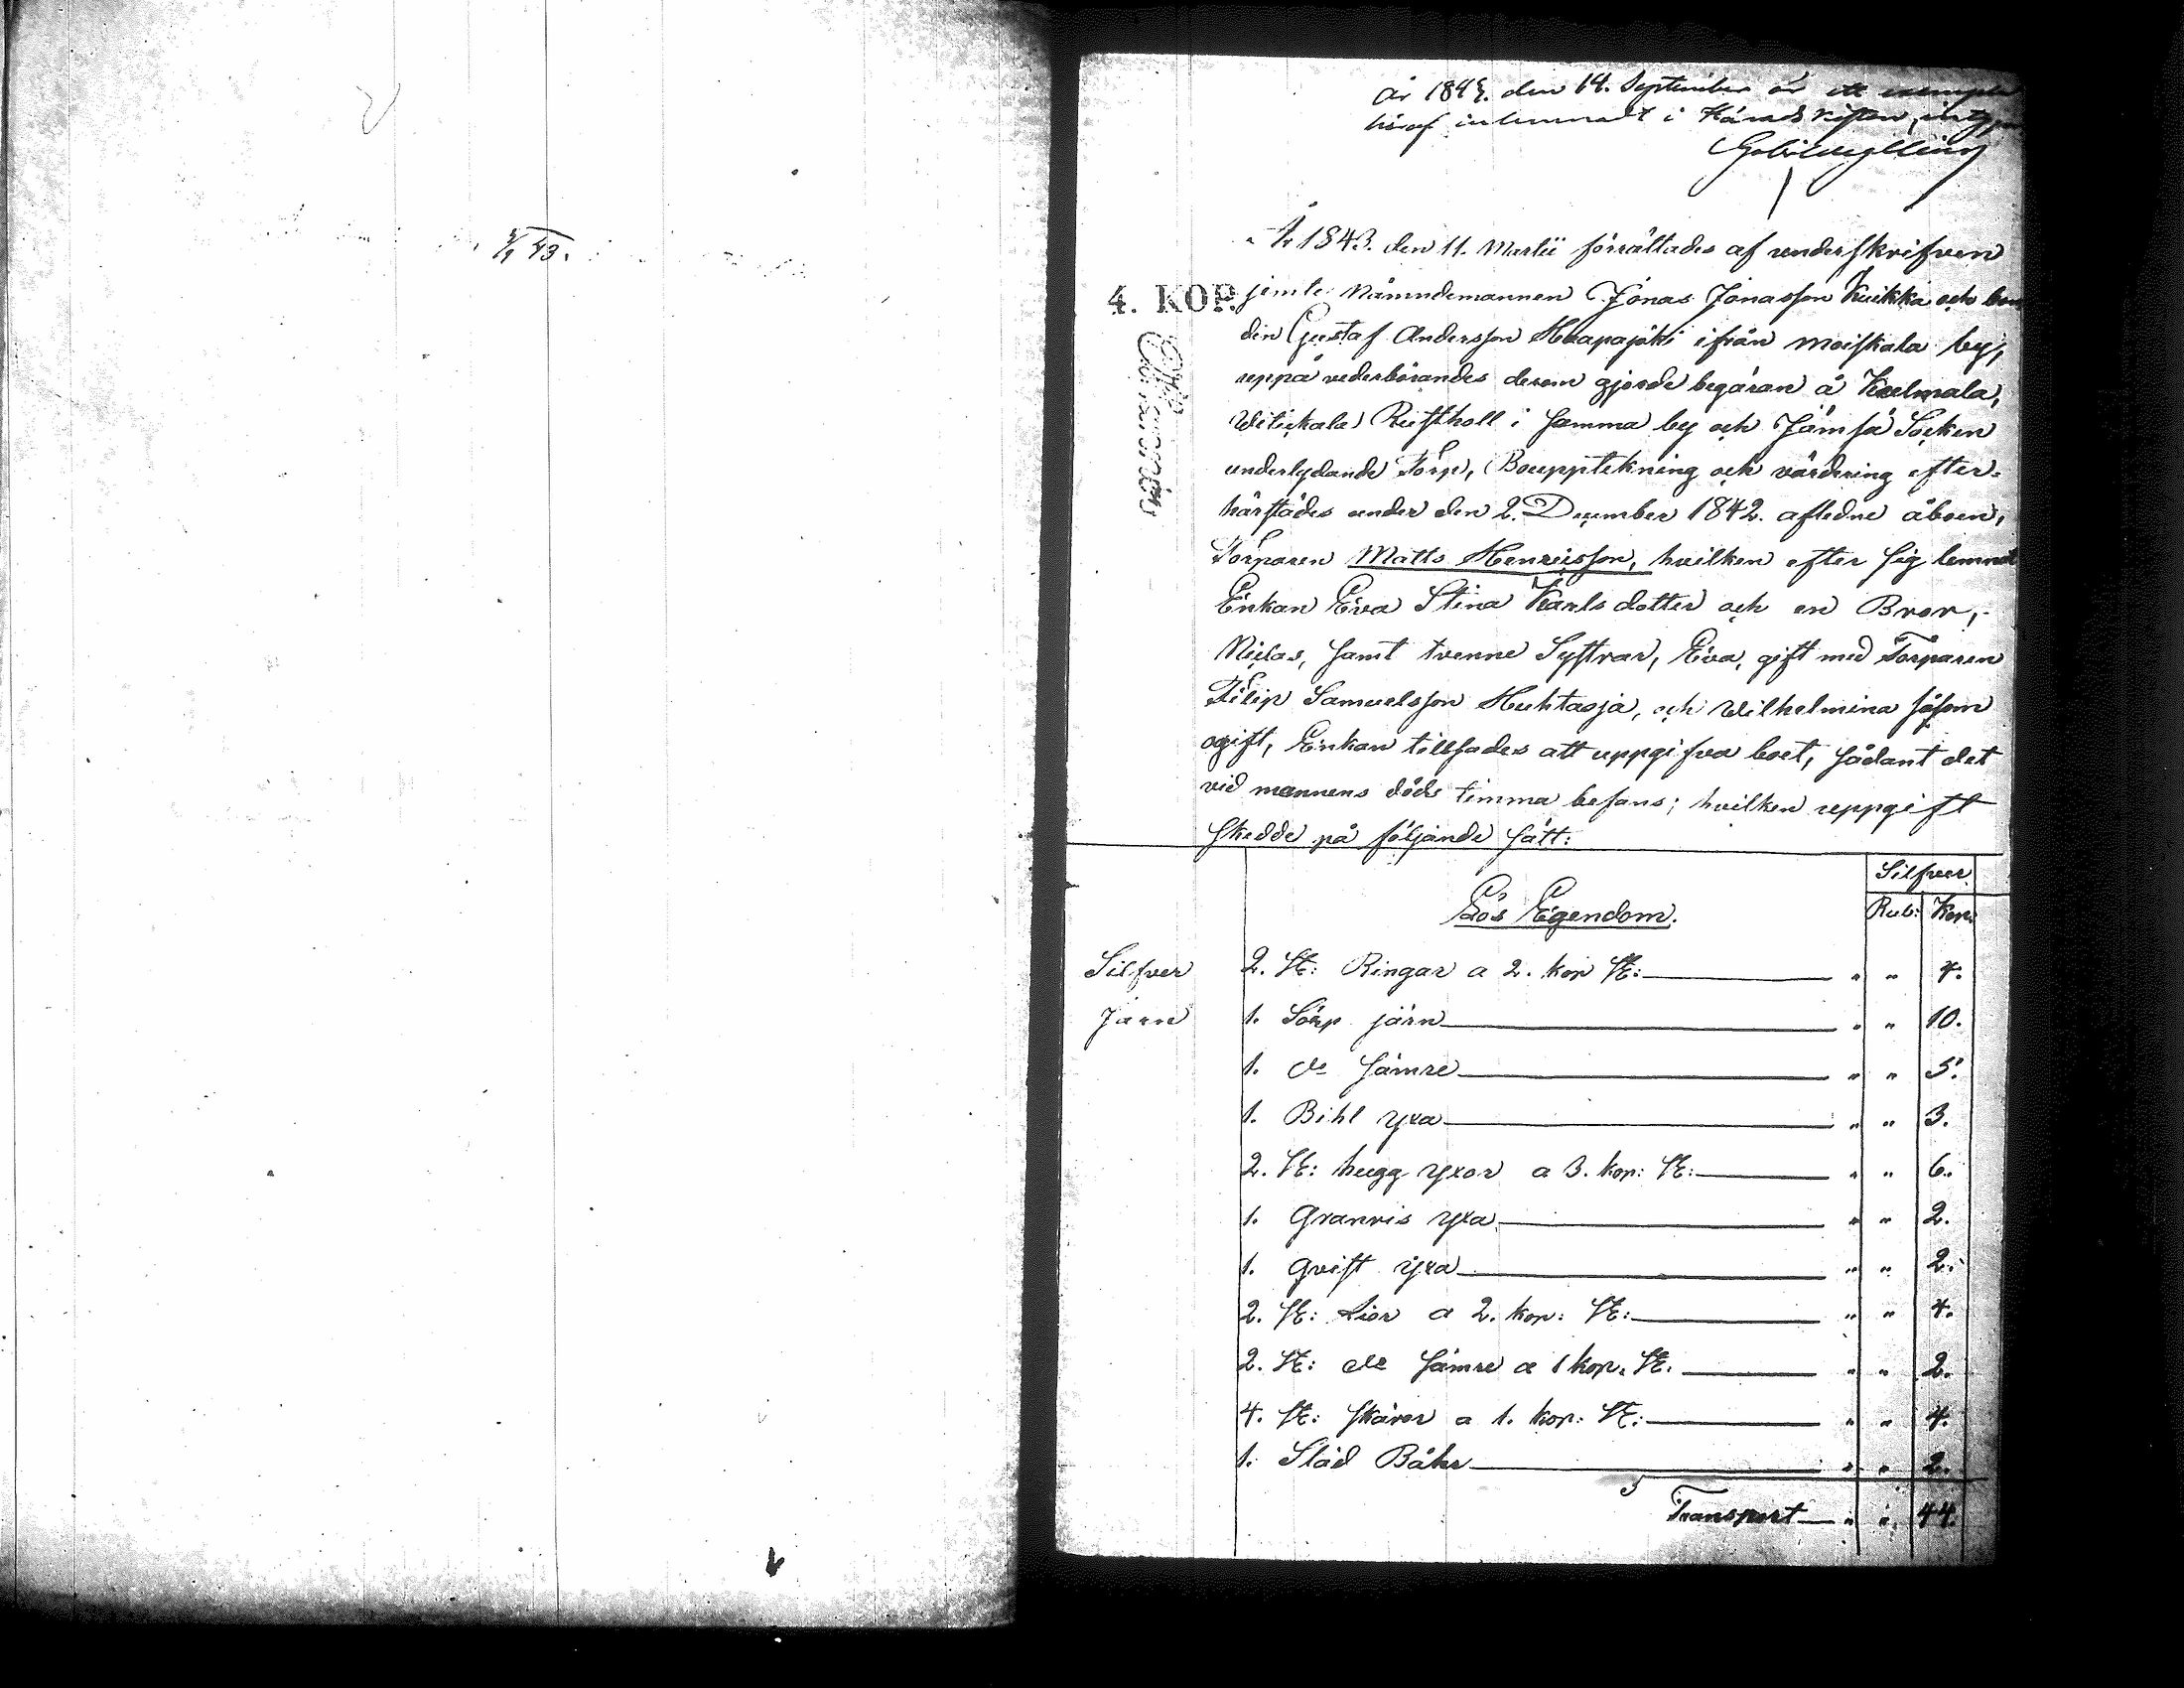 4/1 43.
år 1843. den 14. September är ett exempla
häraf inlemnadt i Härads Kistan, intyg
År 1843. den 11. Martii förrättades af underskrifven
4. KOP. jemte Nämndemannen Jonas Jonasson Kuikka och bon
den Gustaf Andersson Haapajoki ifrån Moiskala by,
uppå vederbörandes derom gjorde begäran å
Rusthåll i samma by och Jämsä Socken
underlydande Torp, Bouppteckning och värdering efter
härstädes under den 2. December 1842. afledne åboen,
Torparen Matts Henricsson, hvilken efter sig lemnat
Enkan Eva Stina Karlsdotter och en Bror,
Niclas, samt tvenne Systrar, Eva, gift med Torparen
Filip Samuelsson Huhtasja, och Wilhelmina såsom
ogift, Enkan tillsades att uppgifva boet, sådant det
vid mannens döds timma befans; hvilken uppgift
skedde på följande sätt:
Silfver
Lös Egendom. Rub: Kop:
Silfver 2. St: Ringar a 2. kop St: " " 4.
Järn 1. järn " " 10.
1. do sämre " " 5.
1. Bihl yxa " " 3.
2. St: hugg yxor a 3. kop: St: " " 6.
1. Granris yxa " " 2.
1. qvist yxa " " 2.
2. St: Lior a 2. kop: St: " " 4.
2. St: do sämre a 1 kop. St. " " 2.
4. St: skäror a 1. kop: St: " " 4.
1. " " 2.
Transport " " 44.